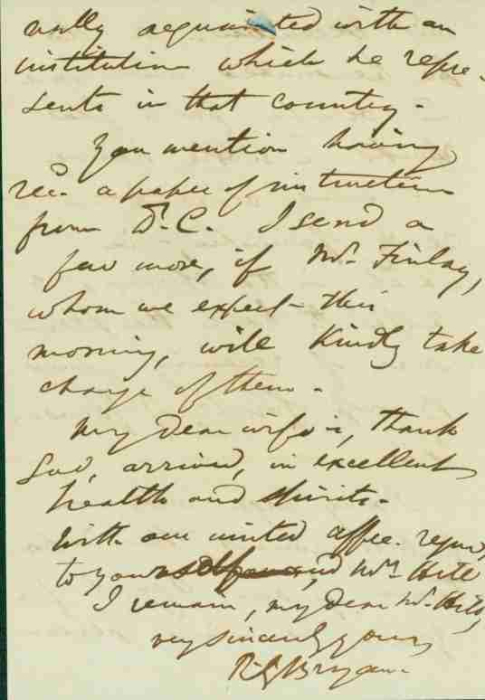 nally acquainted with an
institution which he repre-
sents in that country.
You mention having
recd. a paper of instructions
from D. C. I send a
few more, if Mr. Finlay,
whom we expect this
morning, will kindly take
charge of them.
My dear wife is, thank
God, arrived, in excellent
health and spirits.
With our united affec. regards
to yourself and Mrs Hill
I remain, my dear Mr. Hill,
very sincerely yours